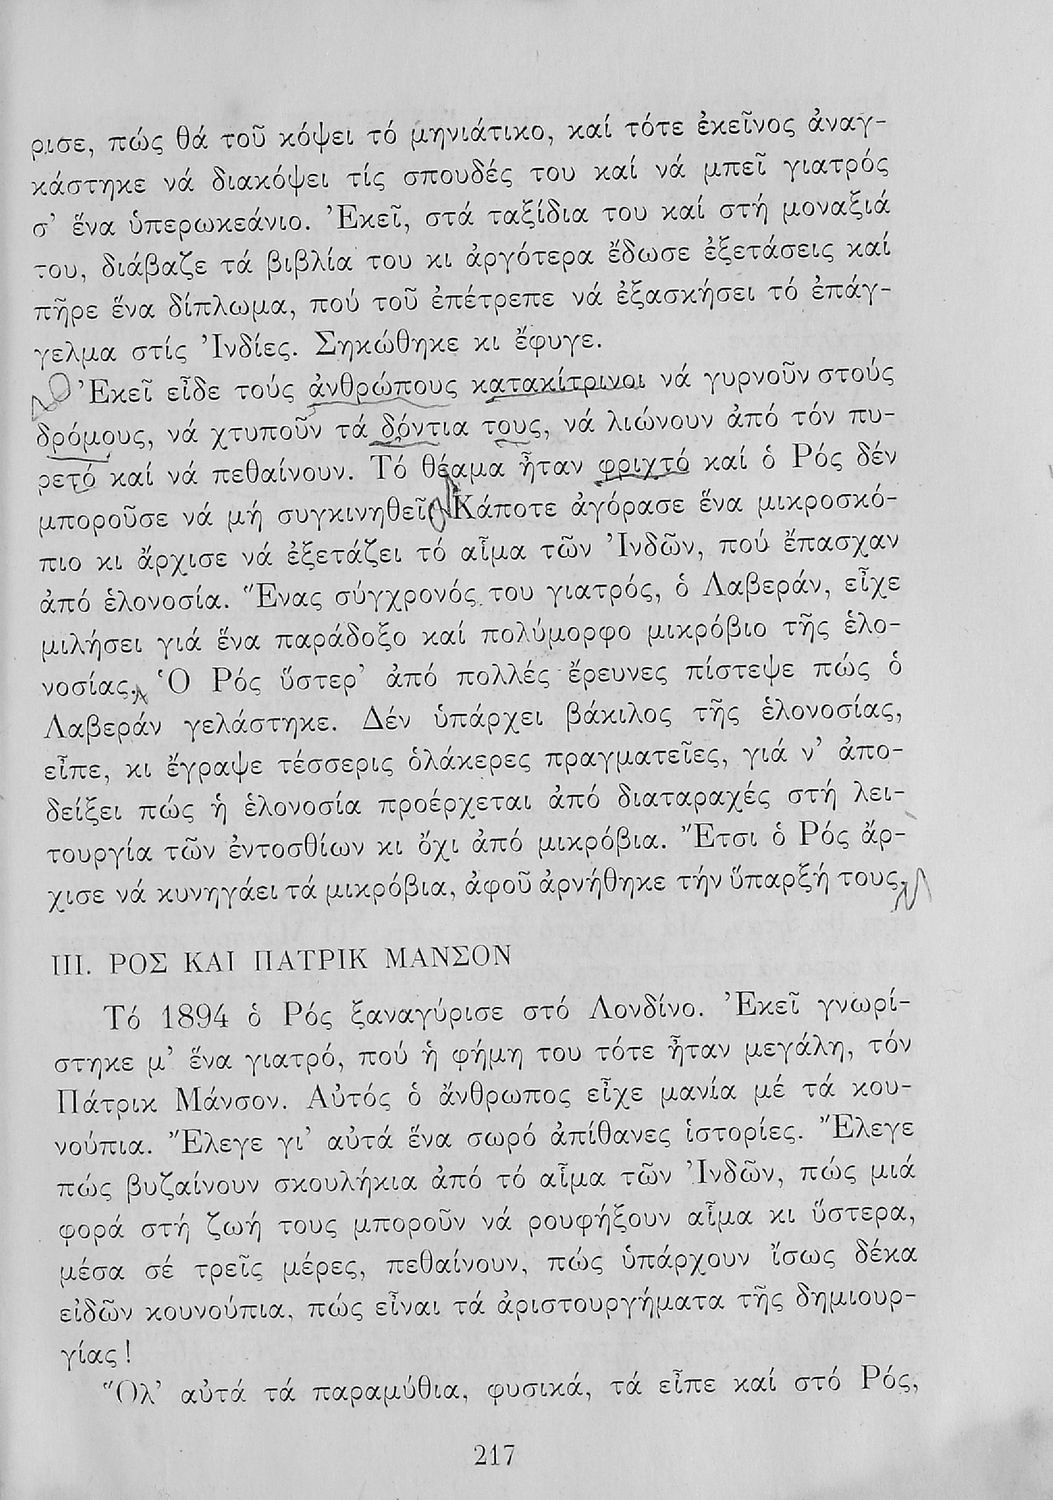 ρισε, πώς θά τοῦ κόψει τό μηνιάτικο, καί τότε ἐκεῖνος ἀναγ-
κάστηκε νά διακόψει τίς σπουδές του καί νά μπεῖ γιατρός
σ’ ἕνα ὑπερωκεάνιο. Ἐκεῖ, στά ταξίδια του καί στή μοναξιά
του, διάβαζε τά βιβλία του κι ἀργότερα ἔδωσε ἐξετάσεις καί
πῆρε ἕνα δίπλωμα, πού τοῦ ἐπέτρεπε νά ἐξασκήσει τό ἐπάγ-
γελμα στίς Ἰνδίες. Σηκώθηκε κι ἔφυγε.
Ἐκεῖ εἶδε τούς ἀνθρώπους κατακίτρινοι νά γυρνοῦν στούς
δρόμους, νά χτυποῦν τά δόντια τους, νά λιώνουν ἀπό τόν πυ-
ρετό καί νά πεθαίνουν. Τό θέαμα ἦταν φριχτό καί ὁ Ρός δέν
μποροῦσε νά μή συγκινηθεῖ. Κάποτε ἀγόρασε ἕνα μικροσκό-
πιο κι ἄρχισε νά ἐξετάζει τό αἷμα τῶν Ἰνδῶν, πού ἔπασχαν
ἀπό ἑλονοσία. Ἕνας σύγχρονός του γιατρός, ὁ Λαβεράν, εἶχε
μιλήσει γιά ἕνα παράδοξο καί πολύμορφο μικρόβιο τῆς ἑλο-
νοσίας. Ὁ Ρός ὕστερ’ ἀπό πολλές ἔρευνες πίστεψε πώς ὁ
Λαβεράν γελάστηκε. Δέν ὑπάρχει βάκιλος τῆς ἑλονοσίας,
εἶπε, κι ἔγραψε τέσσερις ὁλάκερες πραγματεῖες, γιά ν’ ἀπο-
δείξει πώς ἡ ἑλονοσία προέρχεται ἀπό διαταραχές στή λει-
τουργία τῶν ἐντοσθίων κι ὄχι ἀπό μικρόβια. Ἔτσι ὁ Ρός ἄρ-
χισε νά κυνηγάει τά μικρόβια, ἀφοῦ ἀρνήθηκε τήν ὕπαρξή τους.
III. ΡΟΣ ΚΑΙ ΠΑΤΡΙΚ ΜΑΝΣΟΝ
Τό 1894 ὁ Ρός ξαναγύρισε στό Λονδίνο. Ἐκεῖ γνωρί-
στηκε μ’ ἕνα γιατρό, πού ἡ φήμη του τότε ἦταν μεγάλη, τόν
Πάτρικ Μάνσον. Αὐτός ὁ ἄνθρωπος εἶχε μανία μέ τά κου-
νούπια. Ἔλεγε γι’ αὐτά ἕνα σωρό ἀπίθανες ἱστορίες. Ἔλεγε
πώς βυζαίνουν σκουλήκια ἀπό τό αἷμα τῶν Ἰνδῶν, πώς μιά
φορά στή ζωή τους μποροῦν νά ρουφήξουν αἷμα κι ὕστερα,
μέσα σέ τρεῖς μέρες, πεθαίνουν, πώς ὑπάρχουν ἴσως δέκα
εἰδῶν κουνούπια, πώς εἶναι τά ἀριστουργήματα τῆς δημιουρ-
γίας!
Ὅλ’ αὐτά τά παραμύθια, φυσικά, τά εἶπε καί στό Ρός,
217